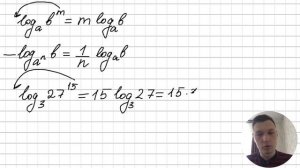 log_a b^m = m log_a b
— log_{a^n} b = 1/n log_a b
log_3 27^15 = 15 log_3 27 = 15 ·